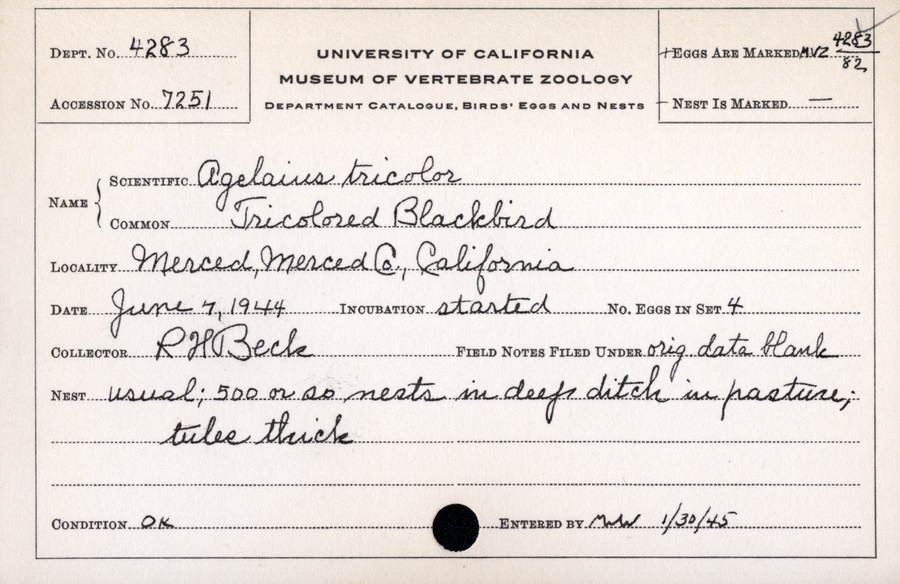 DEPT. No. 4283
ACCESSION No. 7251
UNIVERSITY OF CALIFORNIA
MUSEUM OF VERTEBRATE ZOOLOGY
DEPARTMENT CATALOGUE, BIRDS' EGGS AND NESTS
EGGS ARE MARKED MVZ 4283/82
NEST IS MARKED —
NAME { SCIENTIFIC Agelaius tricolor
COMMON Tricolored Blackbird
LOCALITY Merced, Merced Co., California
DATE June 7, 1944 INCUBATION started No. EGGS IN SET 4
COLLECTOR R H Beck FIELD NOTES FILED UNDER orig data blank
NEST usual; 500 or so nests in deep ditch in pasture;
tules thick
CONDITION OK ENTERED BY MW 1/30/45